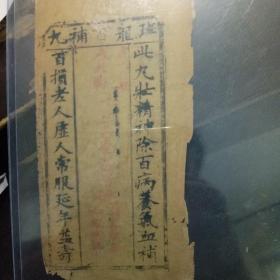 班龍百補丸
此丸壯精神除百病養氣血補
百損老人虛人常服延年益壽